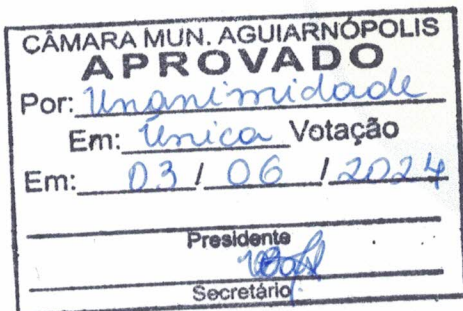 CÂMARA MUN. AGUIARNÓPOLIS
APROVADO
Por: Unanimidade
Em: Única Votação
Em: 03 / 06 / 2024
Presidente
Secretário